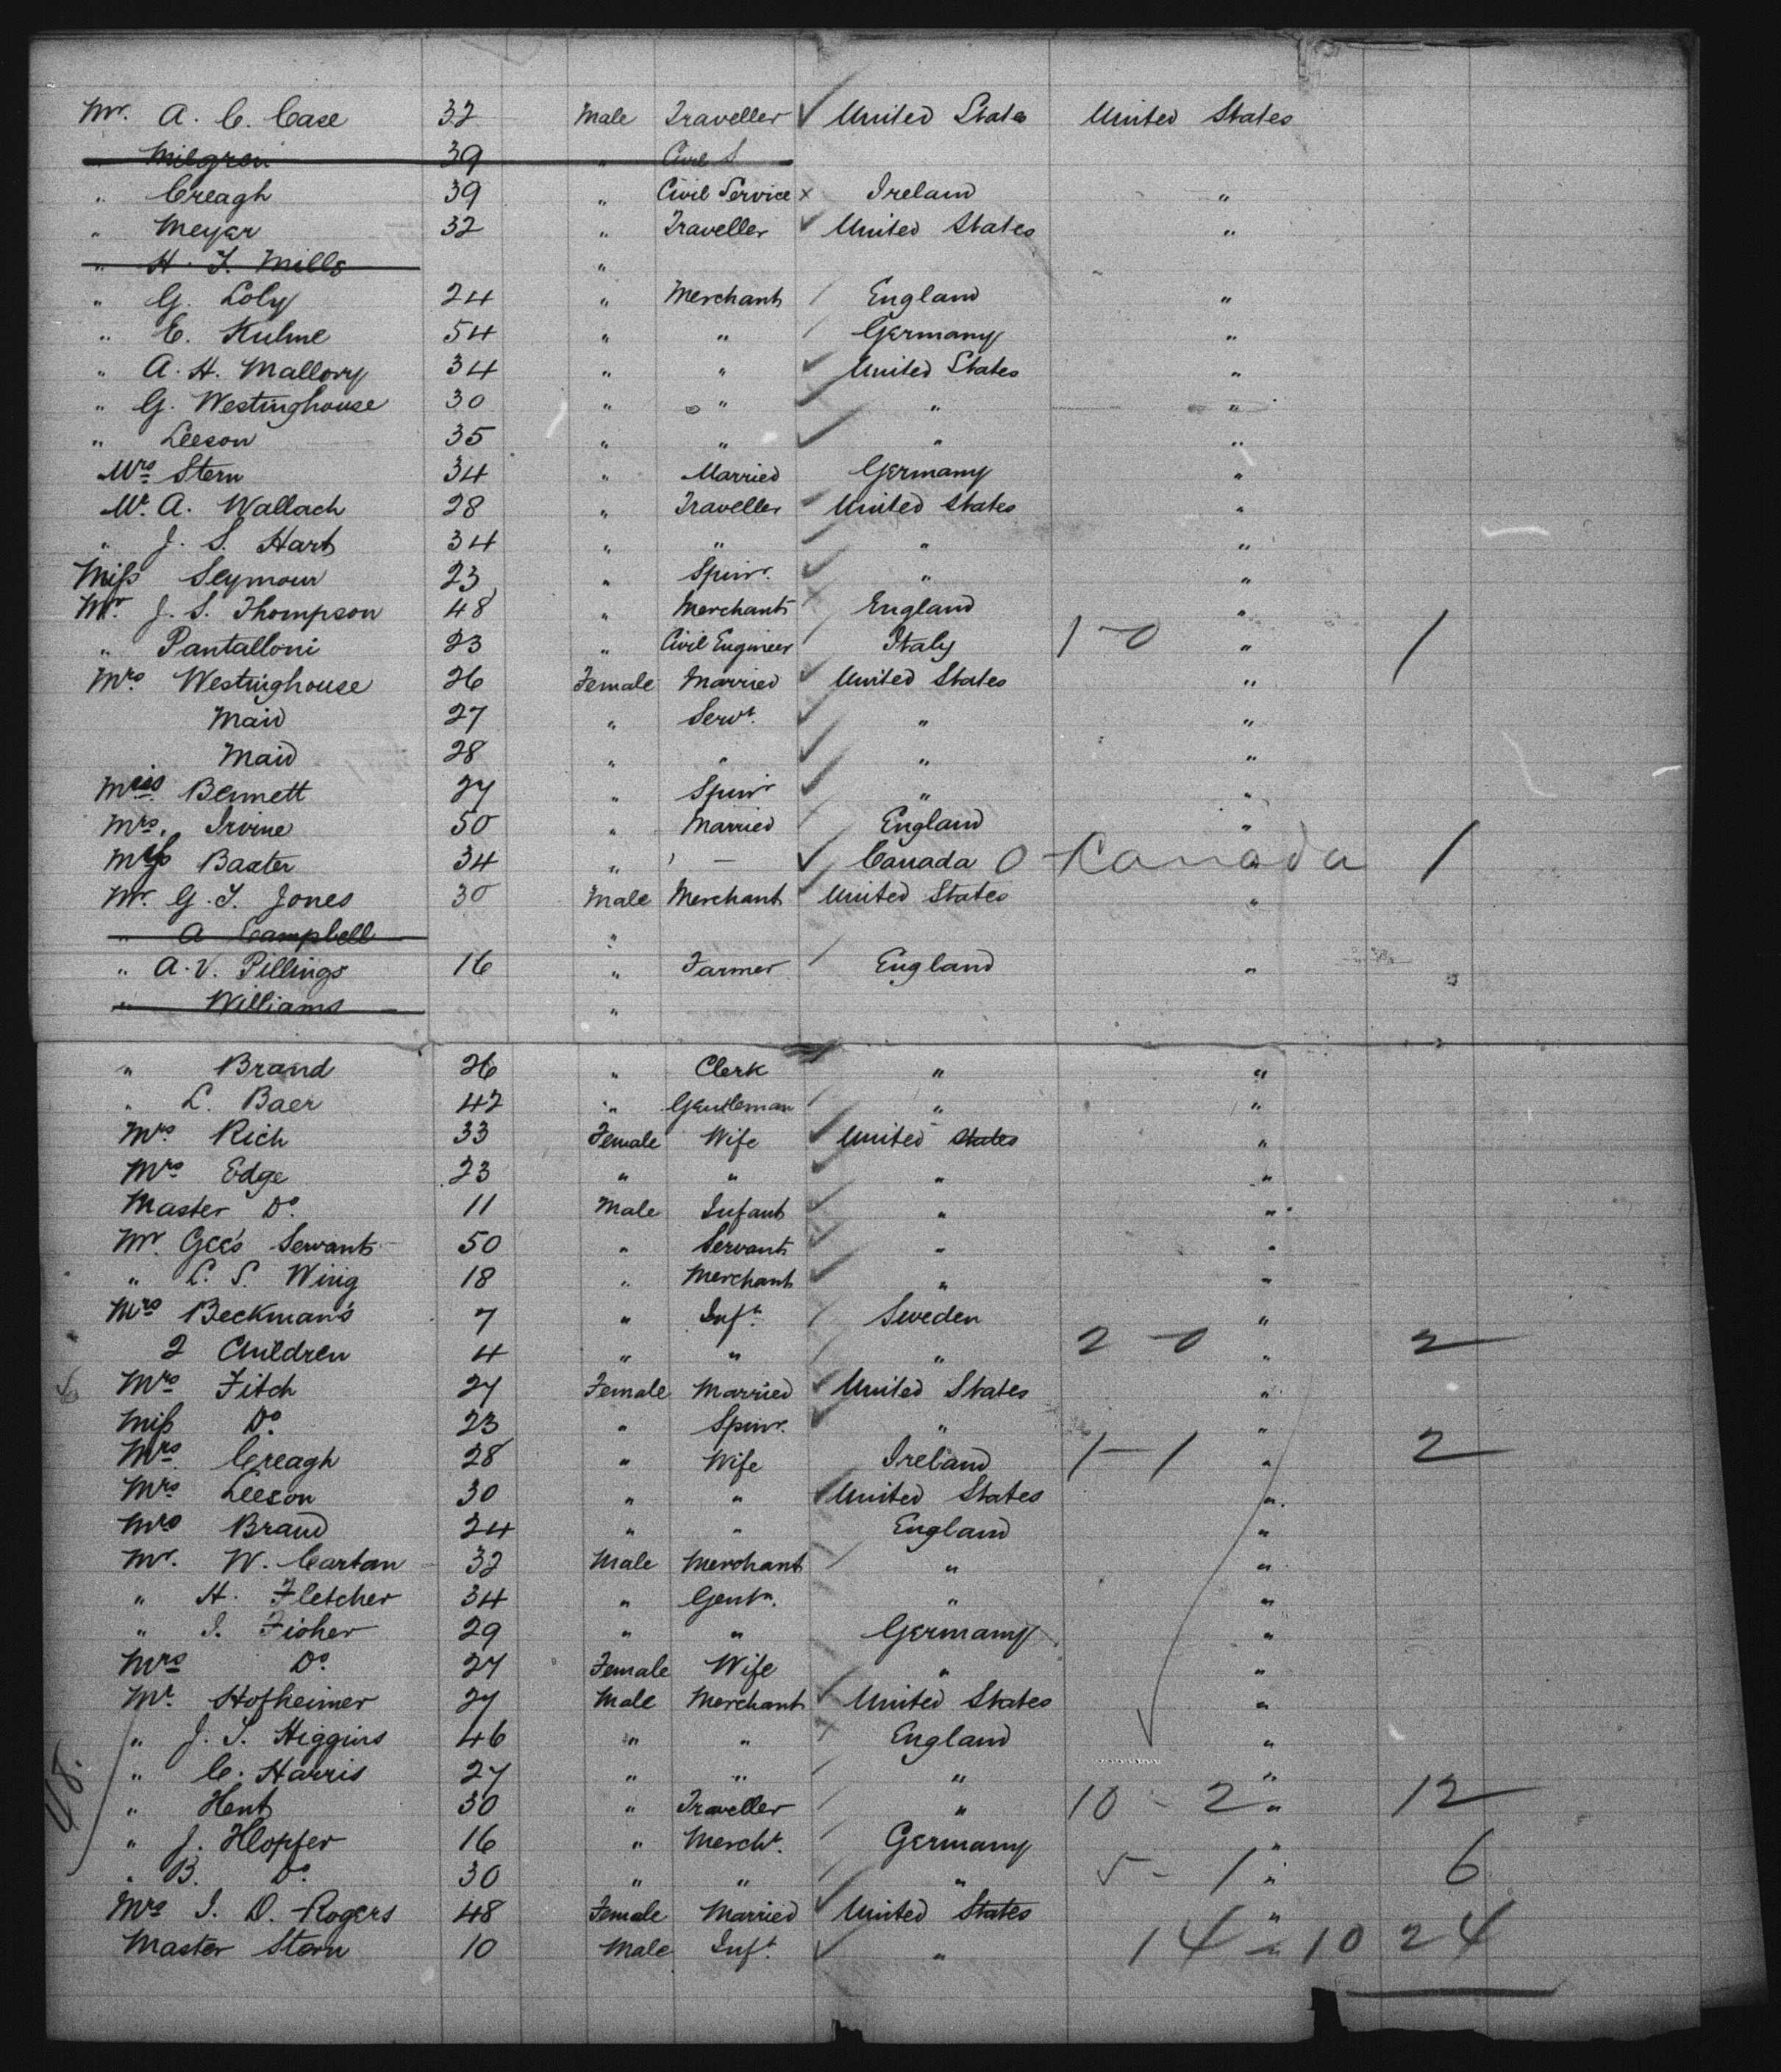 Mr. A. C. Case 32 Male Traveller United States United States
" Milgren 39 " Civil S
" Creagh 39 " Civil Service Ireland "
" Meyer 32 " Traveller United States "
" H. J. Mills "
" G. Loly 24 " Merchant England "
" E. Kulme 54 " " Germany "
" A. H. Mallory 34 " " United States "
" G. Westinghouse 30 " " " "
" Leeson 35 " " " "
Mrs Stern 34 " Married Germany "
Mr. A. Wallach 28 " Traveller United States "
" J. S. Hart 34 " " " "
Miss Seymour 23 " Spinr. " "
Mr. J. S. Thompson 48 " Merchant England "
" Pantalloni 23 " Civil Engineer Italy 1-0 " 1
Mrs. Westinghouse 26 Female Married United States "
Maid 27 " Servt. " "
Maid 28 " " " "
Miss. Bennett 27 " Spinr " "
Mrs. Irvine 50 " Married England "
Miss Baxter 34 " — Canada 0-Canada " 1
Mr. G. J. Jones 30 Male Merchant United States "
" A Campbell "
" A. V. Pillings 16 " Farmer England "
" Williams "
" Brand 26 " Clerk " "
" L. Baer 42 " Gentleman " "
Mrs. Rich 33 Female Wife United States "
Mrs Edge 23 " " " "
Master Do. 11 Male Infant " "
Mr. Gee's Servant 50 " Servant " "
" L. S. Wing 18 " Merchant " "
Mrs Beckman's 7 " Inft. Sweden "
2 Children 4 " " " 2-0 " 2
Mrs Fitch 27 Female Married United States "
Miss Do. 23 " Spinr. " "
Mrs. Creagh 28 " Wife Ireland 1-1 " 2
Mrs Leeson 30 " " United States "
Mrs Brand 24 " " England "
Mr. W. Cartan 32 Male Merchant " "
" H. Fletcher 34 " Gentn. " "
" I. Fisher 29 " " Germany "
Mrs Do. 27 Female Wife " "
Mr. Hofheimer 27 Male Merchant United States "
" J. S. Higgins 46 " " England "
" C. Harris 27 " " " "
" Hent 30 " Traveller " 10-2 " 12
" J. Hlopfer 16 " Mercht. Germany "
" B. Do. 30 " " " 5-1 " 6
Mrs I. D. Rogers 48 Female Married United States "
Master Stern 10 Male Inft. " 14-10 24